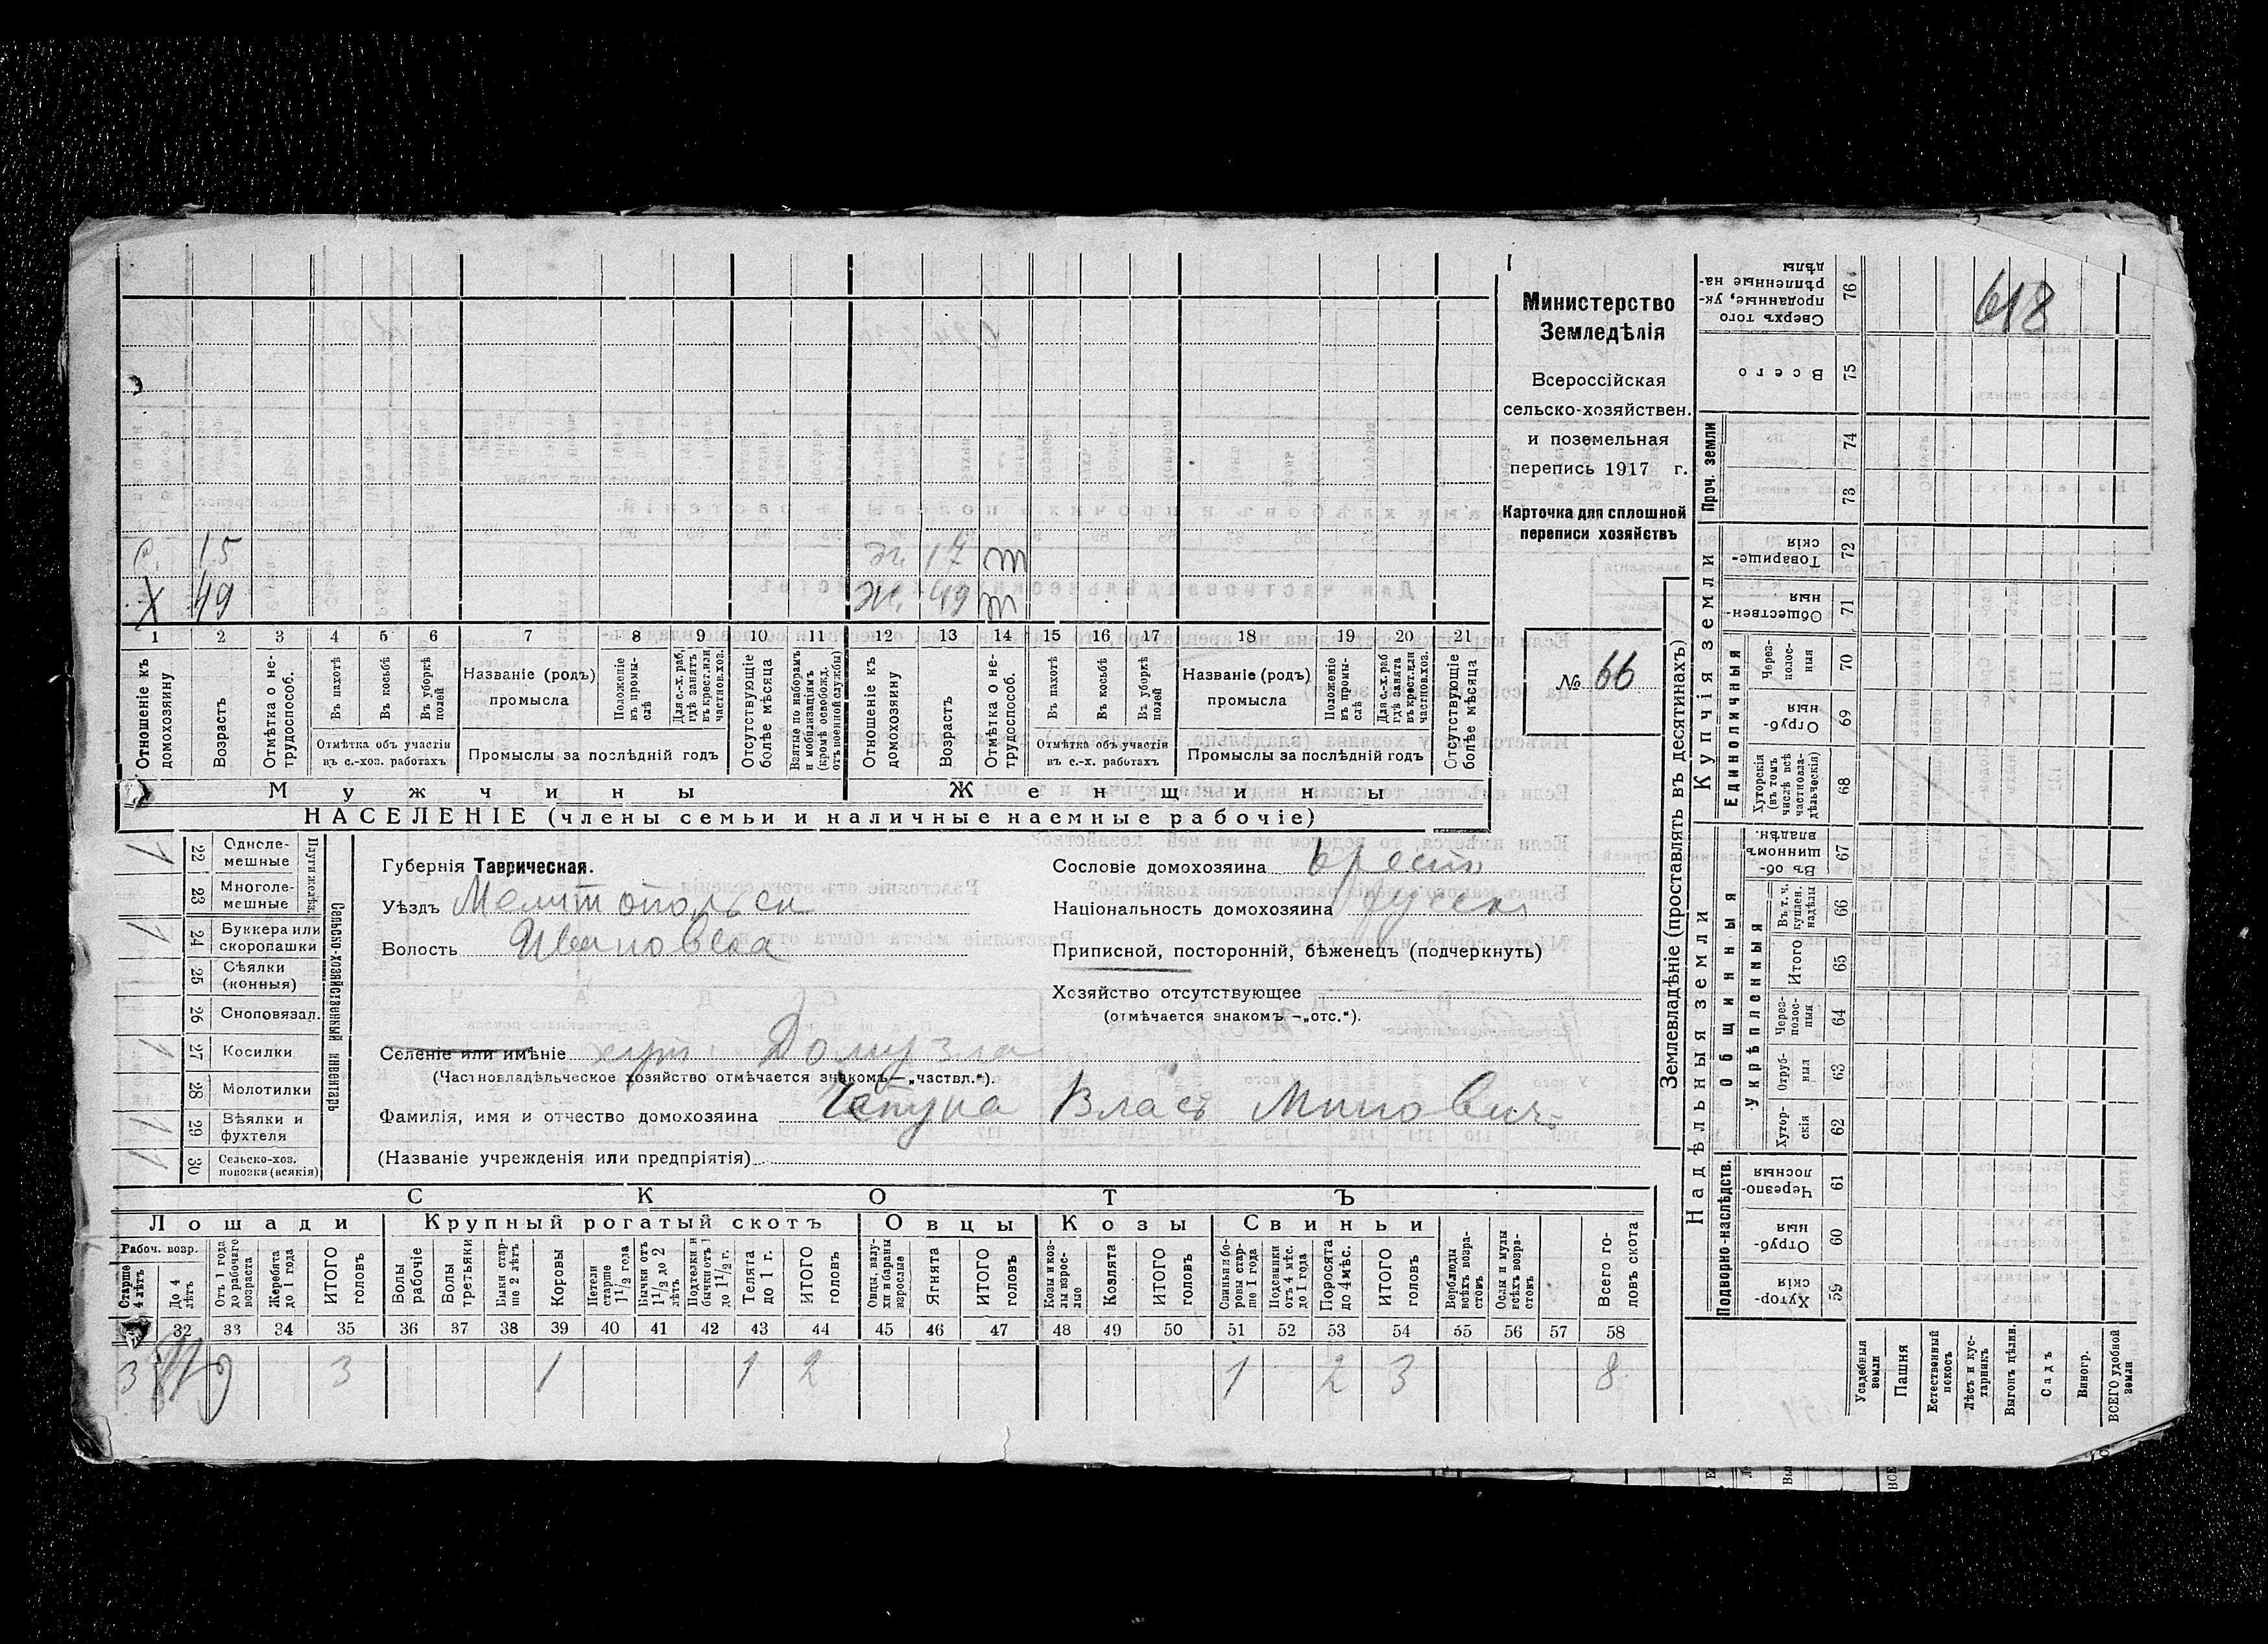 618
Министерство
Земледѣлія
Всероссійская
сельско-хозяйствен.
и поземельная
перепись 1917 г.
Карточка для сплошной
переписи хозяйствъ
№ 66
с. 15 ж. 17 т
X 49 ж. 49 т
1 2 3 4 5 6 7 8 9 10 11 12 13 14 15 16 17 18 19 20 21
Отношеніе къ домохозяину.
Возрастъ
Отмѣтка о нетрудоспособ.
Въ пахотѣ
Въ косьбѣ
Въ уборкѣ полей
Отмѣтка объ участіи въ с.-хоз. работахъ
Названіе (родъ) промысла
Положеніе въ промыслѣ
Для с.-х. раб, гдѣ занятъ въ крест. или частнов. хоз.
Промыслы за послѣдній годъ
Отсутствующіе болѣе мѣсяца
Взятые по наборамъ и мобилизаціямъ (кромѣ освобожд. отъ военной службы)
Отношеніе къ домохозяину
Возрастъ
Отмѣтка о нетрудоспособ.
Въ пахотѣ
Въ косьбѣ
Въ уборкѣ полей
Отмѣтка объ участіи въ с.-х. работахъ
Названіе (родъ) промысла
Положеніе въ промыслѣ
Для с.-х. раб гдѣ занята въ крест. или частнов. хоз.
Промыслы за послѣдній годъ
Отсутствующіе болѣе мѣсяца
Мужчины Женщины
НАСЕЛЕНІЕ (члены семьи и наличные наемные рабочіе)
Сельско-хозяйственный инвентарь
Плуги желѣз.
1 22 Однолемешные
23 Многолемешные
1 24 Буккера или скоропашки
25 Сѣялки (конныя)
26 Сноповязал.
1 27 Косилки
28 Молотилки
1 29 Вѣялки и фухтеля
1 30 Сельско-хоз. повозки (всякія)
Губернія Таврическая.
Уѣздъ Мелитопольск
Волость Ивановка
Сословіе домохозяина крест
Національность домохозяина русск
Приписной, посторонній, бѣженецъ (подчеркнуть)
Хозяйство отсутствующее
(отмѣчается знакомъ —„отс.“).
Селеніе или имѣніе хут. Домузла
(Частновладѣльческое хозяйство отмѣчается знакомъ—„частвл.“).
Фамилія, имя и отчество домохозяина Чапуха Власъ Миновичъ
(Названіе учрежденія или предпріятія)
СКОТЪ
Лошади Крупный рогатый скотъ Овцы Козы Свиньи
Рабоч. возр.
Старше 4 лѣтъ
До 4 лѣтъ
Отъ 1 года до рабочаго возраста
Жеребята до 1 года
ИТОГО головъ
Волы рабочіе
Волы третьяки
Быки старше 2 лѣтъ
Коровы
Нетели старше 1 1/2 года
Бычки отъ 1 1/2 до 2 лѣтъ
Подтелки и бычки отъ 1 до 1 1/2 г.
Телята до 1 г.
ИТОГО головъ
Овцы, валухи и бараны взрослые
Ягнята
ИТОГО головъ
Козы и козлы взрослые
Козлята
ИТОГО головъ
Свиньи и боровы старше 1 года
Подсвинки отъ 4 мѣс. до 1 года
Поросята до 4 мѣс.
ИТОГО головъ
Верблюды всѣхъ возрастовъ
Ослы и мулы всѣхъ возрастовъ
Всего головъ скота
32 33 34 35 36 37 38 39 40 41 42 43 44 45 46 47 48 49 50 51 52 53 54 55 56 57 58
3 3 1 1 2 1 2 3 8
Землевладѣніе (проставлять въ десятинахъ)
Купчія земли
Надѣльныя земли
Сверхъ того проданные, укрѣпленные надѣлы 76
Всего 75
Проч. земли 74 73
Товарищескія 72
Общественныя 71
Единоличныя
Черезполосныя 70
Отрубныя 69
Хуторскія (въ томъ числѣ всѣ частновладѣльческія) 68
Общинныя
Въ общинномъ владѣн. 67
Укрѣпленныя
Въ т. ч. куплен. надѣлы 66
Итого 65
Черезполосныя 64
Отрубныя 63
Хуторскія 62
Подворно-наслѣдств.
Черезполосныя 61
Отрубныя 60
Хуторскія 59
Усадебныя земли
Пашня
Естественный покосъ
Лѣсъ и кустарникъ
Выгонъ дѣлин.
Садъ
Виногр.
ВСЕГО удобной земли